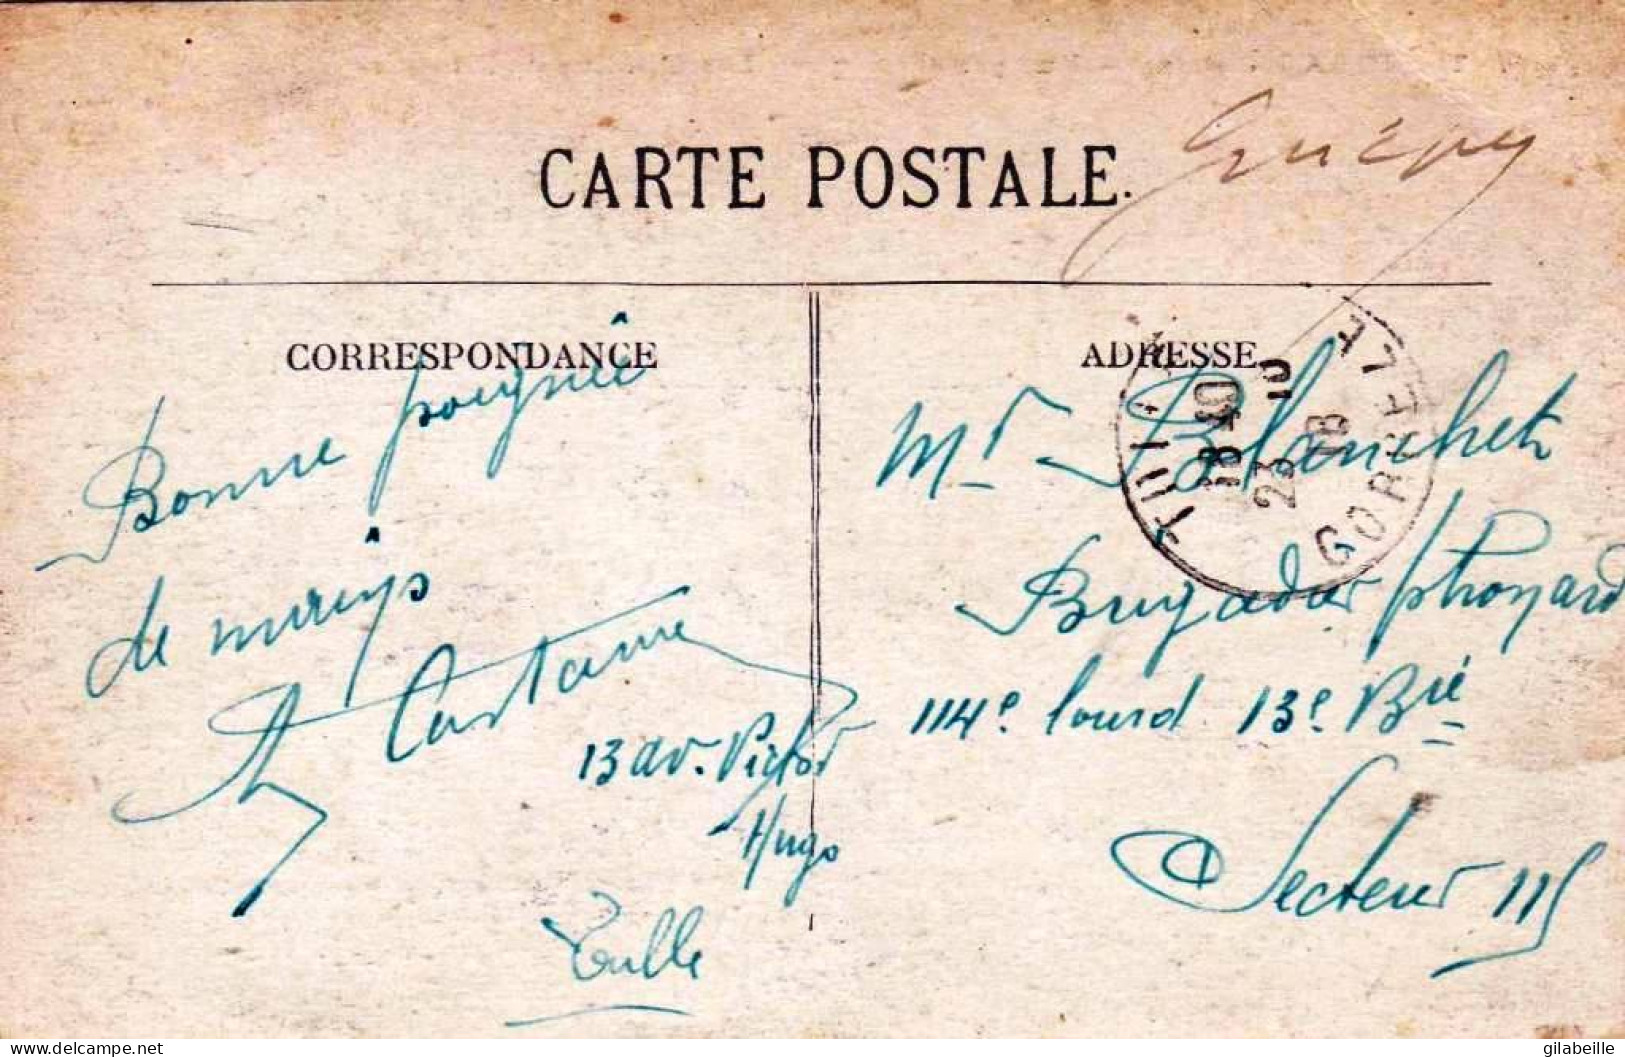 CARTE POSTALE.
CORRESPONDANCE
Bonne poignée
de mains
Castanie
13 av. Victor
Hugo
Tulle
ADRESSE
TULLE
18 40
23 10
18
CORREZE
Mr Blanchet
Brigadier
114e lourd 13e Bie
Secteur 115
www.delcampe.net
gilabeille